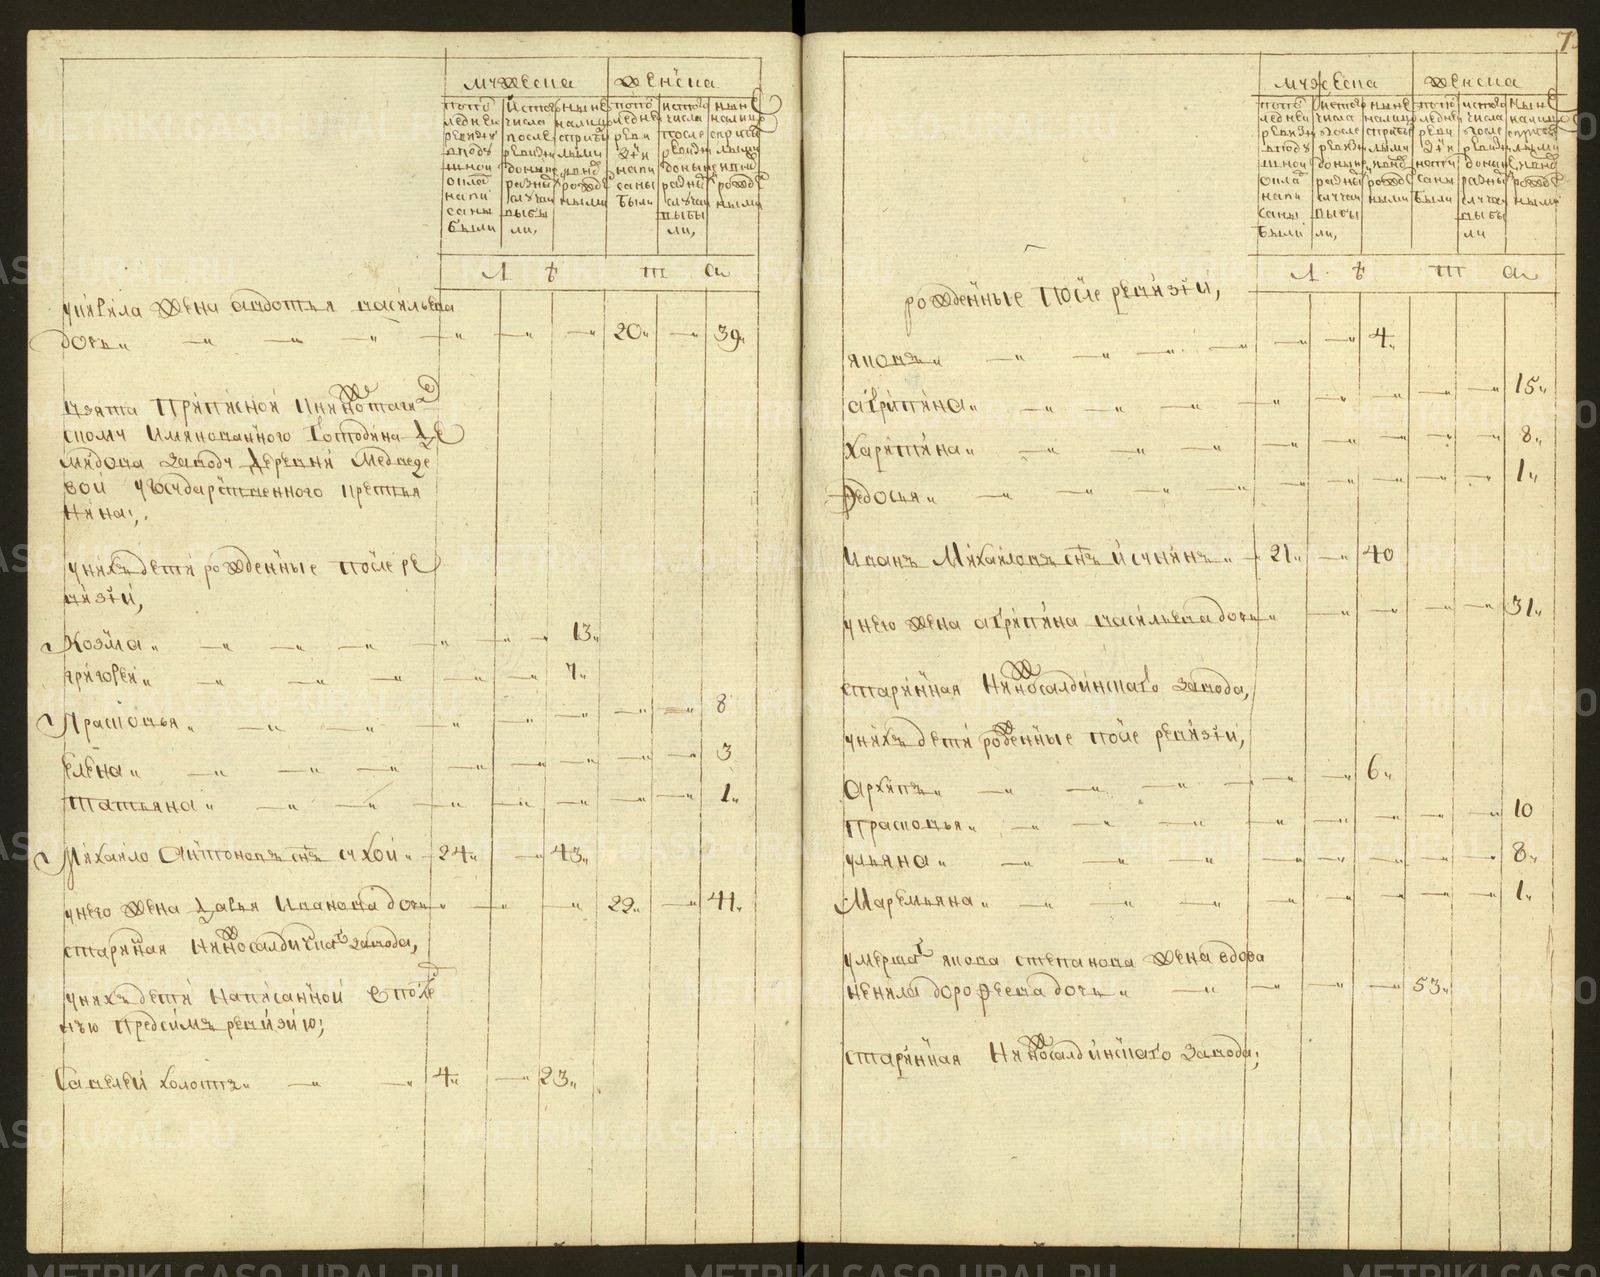 мужеска женска
попо
следней
ревизи
в поду
шной
окла
напи
саны
были
ис того
числа
после
ревизи
до ныне
разны
случаи
выбы
ли,
ныне
налицо
с прибы
лыми
и вно
рожде
ными
попо
следне
реви
зiи
напи
саны
были
ис того
числа
после
ревизи
до ныне
разны
случаи
выбы
ли,
ныне
налицо
с прибы
лыми
и вно
рожде
ными
Л ѣ т а
у Кирила жена авдотья васильева
дочь 20 39
взята приписной книжотаги
скому имянованного Господина Де
мидова заводу деревни Медведе
вой у государственного крестья
нина,
у них дети рожденные после ре
визiи,
Козма 13
григорей 7
Прасковья 8
елена 3
татьяна 1
Михайло Антонов снъ сухой 24 43
у него жена дарья Иванова дочь 22 41
старинная Нижносалдинскаг завода,
у них дети написанной в после
нюю предсимъ ревизию;
Савелей холостъ 4 23
7
мужеска женска
попо
следней
ревизи
в поду
шной
окла
напи
саны
были
ис того
числа
после
ревизи
до ныне
разны
случаи
выбы
ли,
ныне
налицо
с прибы
лыми
и вно
рожде
ными
попо
следне
реви
зiи
напи
саны
были
ис того
числа
после
ревизи
до ныне
разны
случаи
выбы
ли
ныне
налицо
с прибы
лыми
и вно
рожде
ными
Л ѣ т а
рожденные после ревизiи,
яковъ 4
агрипина 15
харитина 8
Федосья 1
Иванъ Михайловъ снъ исунинъ 21 40
у нево жена агрипина васильева дочь 31
старинная Нижносалдинскаго завода,
у нихъ дети рожденные после ревизiи,
Архипъ 6
прасковья 10
ульяна 8
Маремьяна 1
умершаг якова степанова жена вдова
ненила дорофеева дочь 53
старинная Нижносалдинскаго завода;
METRIKI.GASO-URAL.RU